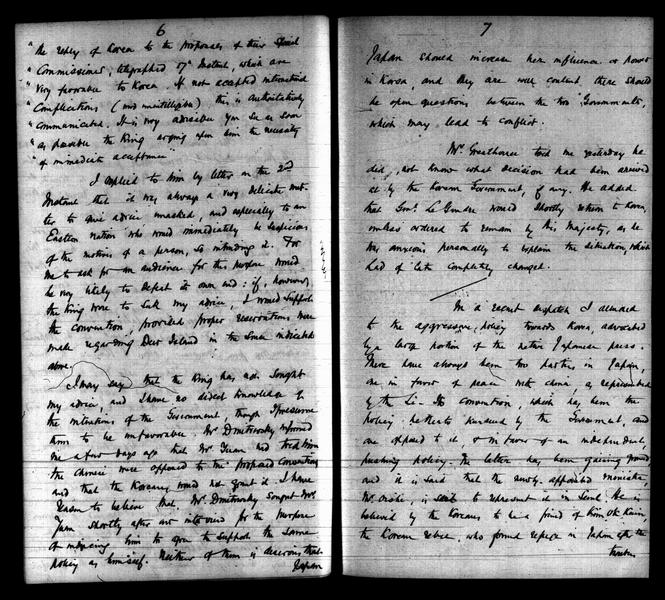 6
" the reply of Korea to the proposals of their Special
" Commissioner, telegraphed 27th Instant, which are
" very favorable to Korea. If not accepted international
" Complications (and unintelligible) this is authoritatively
" communicated. It is very advisable you see as soon
" as possible the King urging upon him the necessity
" of immediate acceptance"
I replied to him by letter on the 2nd
Instant that it was always a very delicate mat-
ter to give advice unasked, and especially to an
Eastern nation who would immediately be suspicious
of the motives of a person, so intruding it. For
me to ask for an audience for this purpose would
be very likely to defeat its own end: if, however,
the King were to seek my advice, I would support
the Convention, provided proper reservations were
made regarding Deer Island in the sense indicated
above.
I may say that the King has not sought
my advice, and I have no direct knowledge of
the intentions of the Government, though I presume
them to be unfavorable. Mr Dmitrevsky informed
me a few days ago that Mr Yuan had told him
the Chinese were opposed to the proposed Convention
and that the Koreans would not grant it. I have
reason to believe that Mr. Dmitrevsky sought Mr.
Yuan shortly after our interview for the purpose
of inducing him to agree to support the same
policy as himself. Neither of them is desirous that
Japan
7
Japan should increase her influence or power
in Korea, and they are well content there should
be open questions between the two Governments,
which may lead to conflict.
Mr. Greathouse told me yesterday he
did not know what decision had been arrived
at by the Korean Government, if any. He added
that Genl. Le Gendre would shortly return to Korea,
unless ordered to remain by His Majesty, as he
was anxious personally to explain the situation, which
had of late completely changed.
In a recent despatch I alluded
to the aggressive policy towards Korea, advocated
by a large portion of the native Japanese press.
There have always been two parties in Japan,
one in favor of peace with China as represented
by the Li-Ito Convention, which has been the
policy hitherto pursued by the Government, and
one opposed to it, & in favor of an independent,
pushing policy. The latter has been gaining ground
and it is said that the newly-appointed minister,
Mr. Oishi, is sent to represent it in Seoul. He is
believed by the Koreans to be a friend of Kim Ok Kiun,
the Korean rebel, who found refuge in Japan after the
troubles